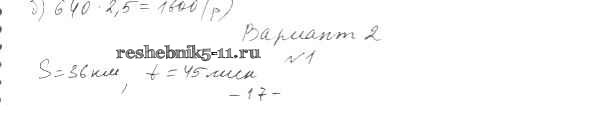 б) 640 · 2,5 = 1600 (р)
Вариант 2
reshebnik5-11.ru
№1
S = 36 км, t = 45 мин
- 17 -